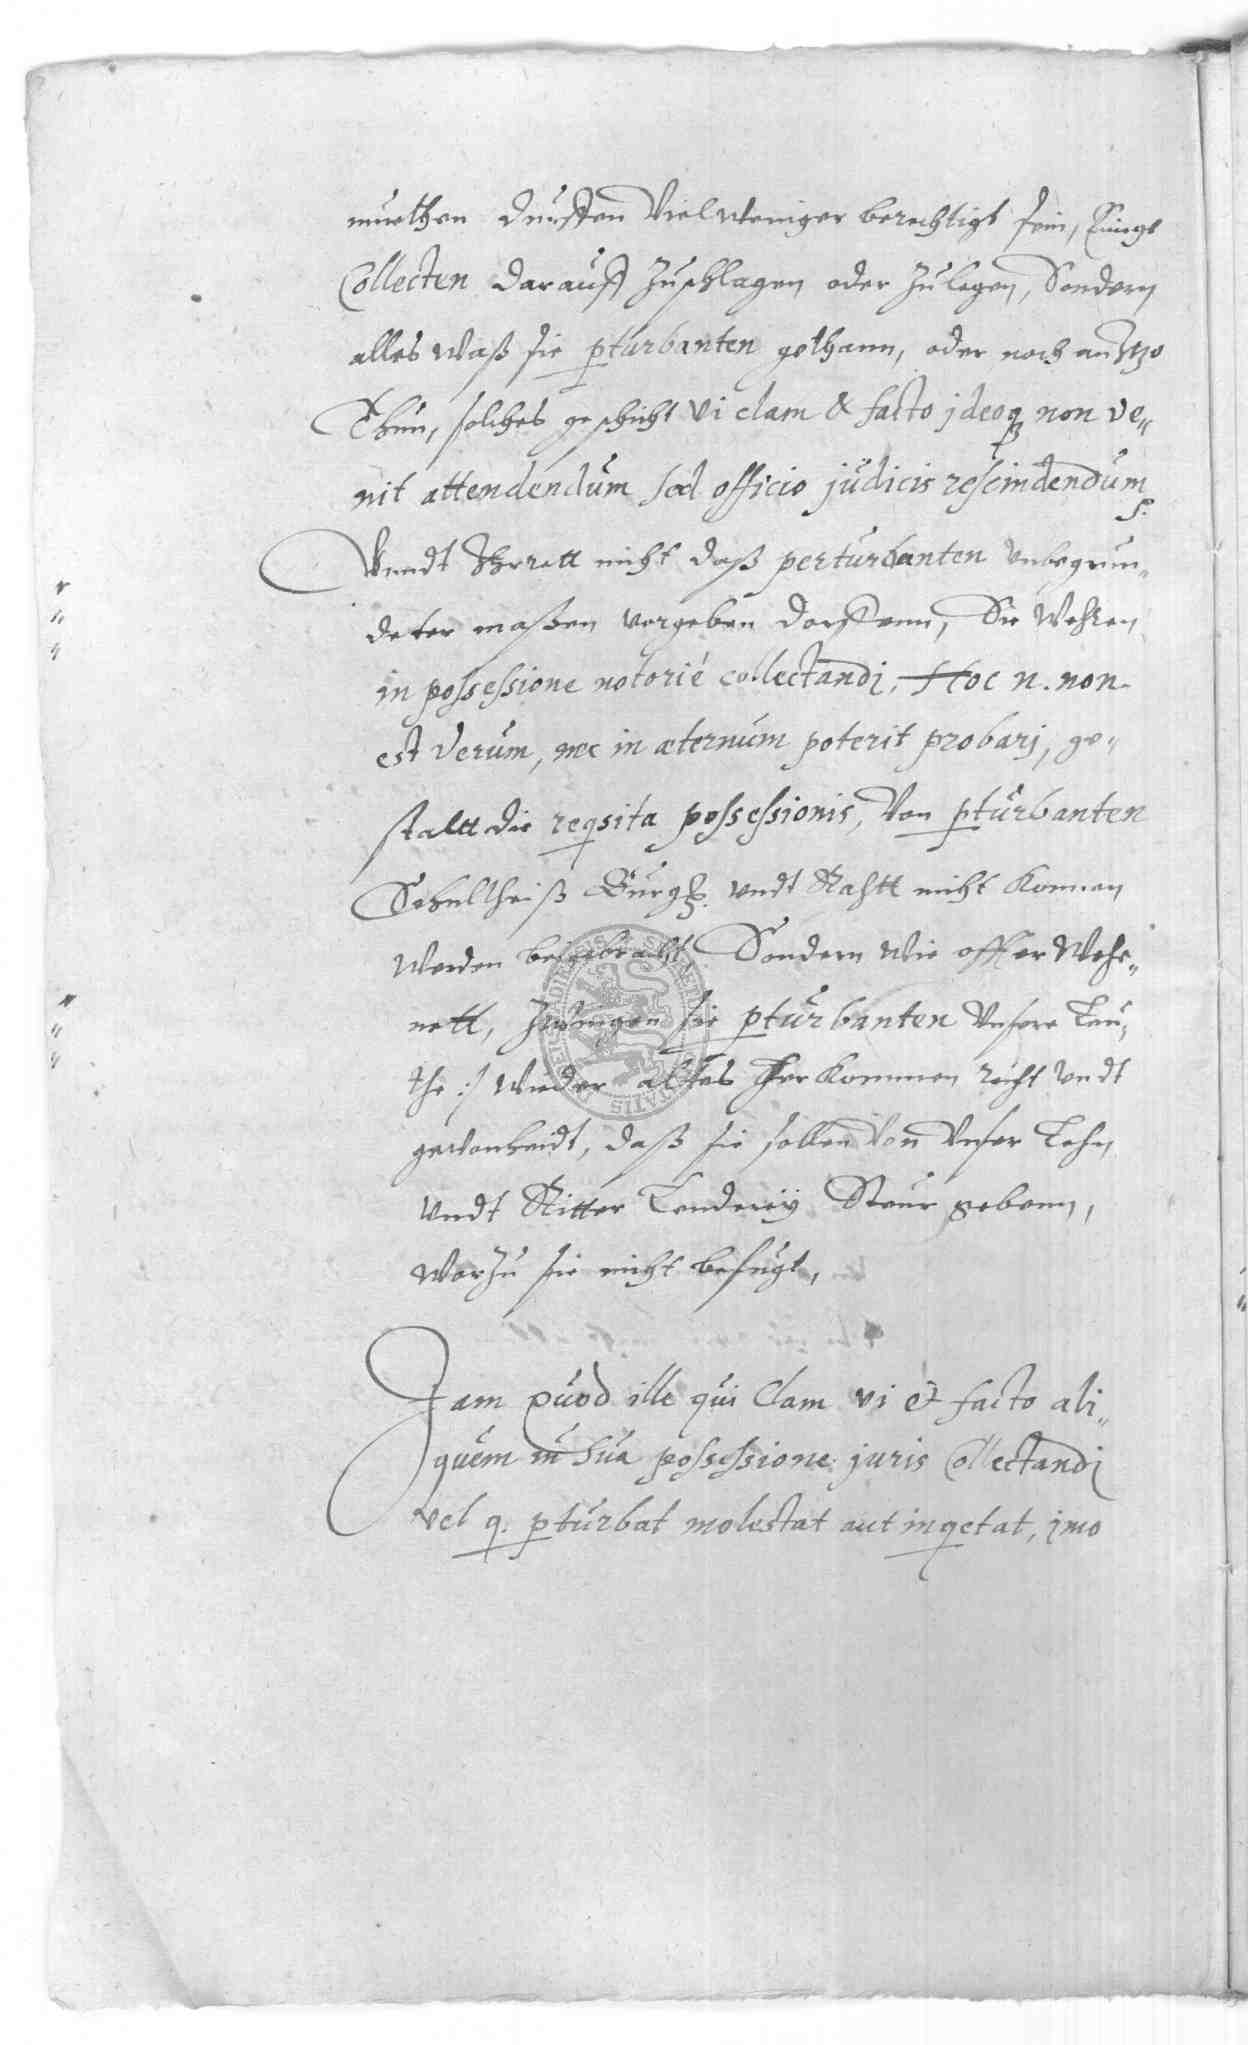 muethen durffen Vielweniger berechtigt sein, Einige
Collecten darauff Zuschlagen oder Zulegen, Sondern
alles waß sie pturbanten gethann, oder noch an itzo
Thun, solches geschicht vi clam & facto jdeoq non ve„
nit attendendum sed officio judicis rescindendum
Vnndt Jhrrett nicht daß perturbanten vnbegrun„
deter maßen vorgeben dorffenn, Sie Wehren
in possessione notorié collectandj, Hoc n. non
est Verum, nec in æternum poterit probarj, ge„
staltt die reqsita possessionis, Von pturbanten
Schultheiß Burgß. vndt Rahtt nicht konnen
werden beigebracht Sondern wie offter Wehe„
nett, Zwingen sie pturbanten Vnsere Leu„
the :/ wieder altes Herkommen recht vndt
gewonheidt, daß sie sollen von Vnser Lehn
vndt Ritter Lenderey Steur gebenn,
warzu sie nicht befugt,
Jam quod ille qui Clam vi et facto ali„
quem in sua possessione juris Collectandj
vel q. pturbat molestat aut inqetat, jmo